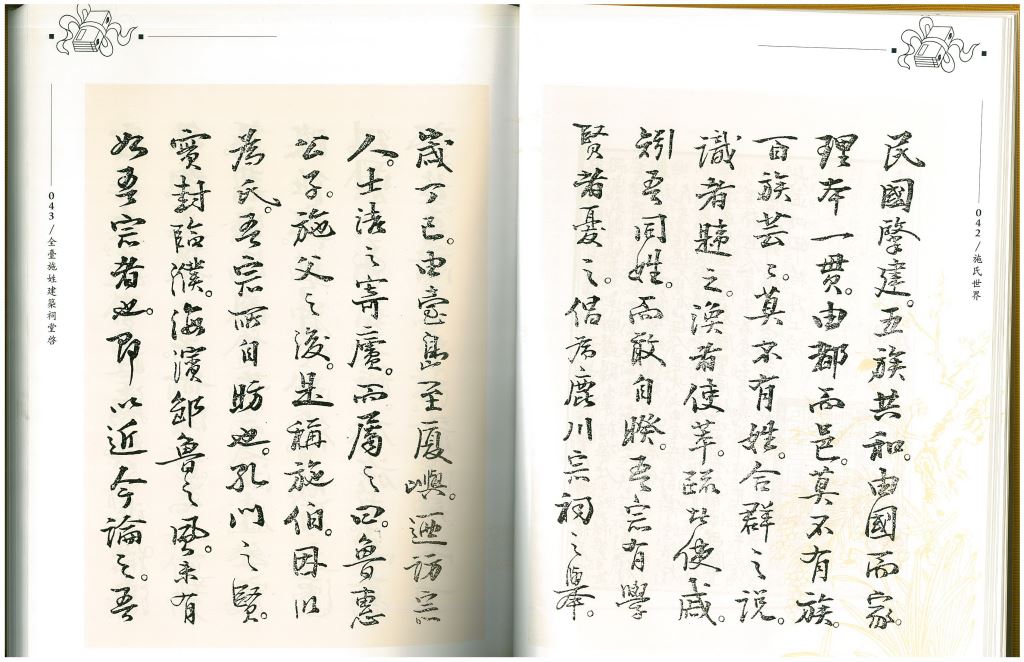 042/施氏世界
民國肇建。五族共和。由國而家。
理本一貫。由都而邑。莫不有族。
百族芸〻。莫不有姓。合群之說。
識者韙之。渙者使萃。疏者使戚。
矧吾同姓。而敢自暌。吾宗有學
賢者憂之。倡為鹿川宗祠之舉。
歲丁巳。由臺島至廈嶼。迺訪宗
人。士洁之寄廬。而屬之曰。魯惠
公子。施父之後。是稱施伯。因以
為氏。吾宗所自昉也。孔門之賢。
實封臨濮。海濱鄒魯之風。有
如吾宗者也。即以近今論之。吾
043/全臺施姓建築祠堂啓